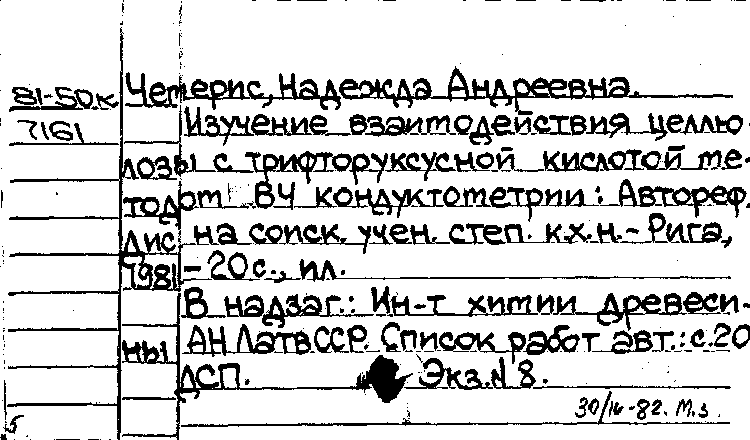 Четерис, Надежда Андреевна.
81-50к
7161
Изучение взаимодействия целлю-
лозы с трифторуксусной кислотой ме-
тодом ВЧ кондуктометрии: Автореф.
дис на соиск. учен. степ. к.х.н.- Рига,
1981 - 20 с., ил.
В надзаг.: Ин-т химии древеси-
ны АН ЛатвССР. Список работ авт.: с.20
ДСП. Экз.N 8.
30/IV-82. М.з.
5